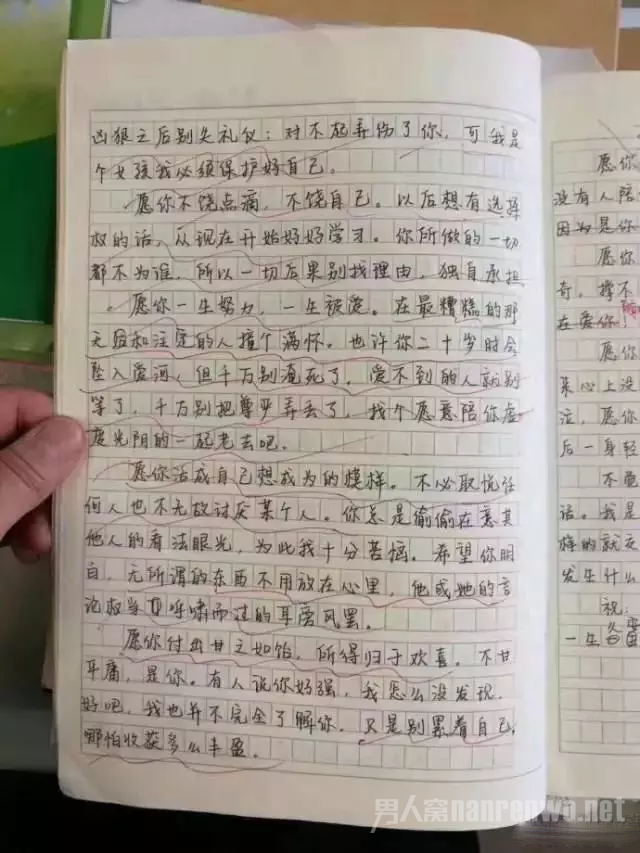 凶狠之后别失礼仪：对不起弄伤了你，可我是
个女孩我必须保护好自己。
愿你不饶点病，不饶自己。以后想有选择
权的话，从现在开始好好学习。你所做的一切
都不为谁，所以一切后果别找理由，独自承担
愿你一生努力，一生被爱。在最糟糕的那
天恰和注定的人撞个满怀。也许你二十岁时会
坠入爱河，但千万别淹死了，爱不到的人就别
等了，千万别把尊严弄丢了，找个愿意陪你虚
度光阴的一起老去吧。
愿你活成自己想成为的模样。不必取悦任
何人也不无故讨厌某个人。你总是偷偷在意其
他人的看法眼光，为此我十分苦恼。希望你明
白，无所谓的东西不用放在心里，他或她的言
论权当作呼啸而过的耳旁风罢。
愿你付出甘之如饴，所得归于欢喜。不甘
平庸，是你。有人说你好强，我怎么没发现，
好吧，我也并不完全了解你，只是别累着自己，
哪怕收获多么丰盈。
愿你
没有人陪
因为是你
愿你
奇，撑不
在爱你！
愿你
来心上没
泣，愿你
后一身轻
不要
话。我是
样的就交
发生什么
祝：
一生
男人窝nanrenwo.net